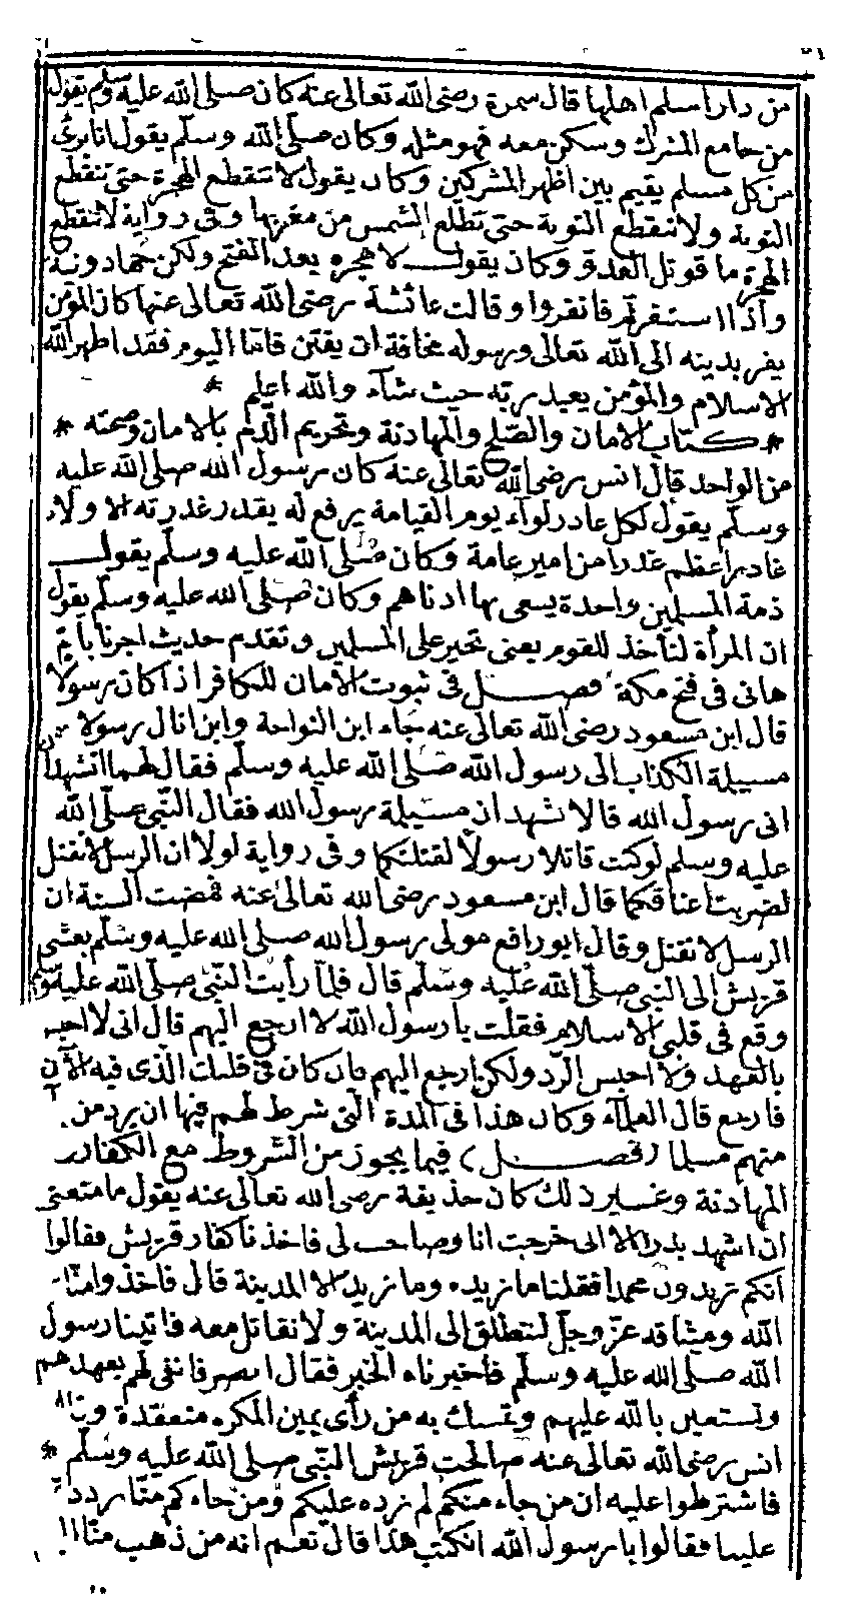 من دار أسلم اهلها قال سمرة رضى الله تعالى عنه كان صلى الله عليه وسلم يقول
من جامع المشرك وسكن معه فهو مثله وكان صلى الله وسلم يقول انا برئ
من كل مسلم يقيم بين اظهر المشركين وكان يقول لا تنقطع الهجرة حتى تنقطع
التوبة ولا تنقطع التوبة حتى تطلع الشمس من مغربها وفى رواية لا تنقطع
الهجرة ما قوتل العدو وكان يقول لا هجره بعد الفتح ولكن جهاد ونية
واذا استنفرتم فانفروا وقالت عائشة رضى الله تعالى عنها كان المؤمن
يفر بدينه الى الله تعالى ورسوله مخافة ان يفتن فاما اليوم فقد اظهر الله
الاسلام والمؤمن يعبد ربه حيث شآء والله اعلم *
* كتاب الامان والصلح والمهادنة وتحريم الدم بالامان وصحته *
من الواحد قال انس رضى الله تعالى عنه كان رسول الله صلى الله عليه
وسلم يقول لكل غادر لوآء يوم القيامة يرفع له بقدر غدرته الا ولا
غادر اعظم غدرا من امير عامة وكان صلى الله عليه وسلم يقول
ذمة المسلمين واحدة يسعى بها ادناهم وكان صلى الله عليه وسلم يقول
ان المرأة لتأخذ للقوم يعنى تجير على المسلمين وتقدم حديث اجرنا يا ام
هانى فى فتح مكة فصل فى ثبوت الامان للكافر اذا كان رسولا
قال ابن مسعود رضى الله تعالى عنه جاء ابن النواحة وابن اثال رسولا
مسيلة الكذاب الى رسول الله صلى الله عليه وسلم فقال لهما اتشهدان
انى رسول الله قالا نشهد ان مسيلة رسول الله فقال النبى صلى الله
عليه وسلم لو كنت قاتلا رسولا لقتلتكما وفى رواية لولا ان الرسل لا تقتل
لضربت اعناقكما قال ابن مسعود رضى الله تعالى عنه فمضت السنة ان
الرسل لا تقتل وقال ابو رافع مولى رسول الله صلى الله عليه وسلم بعثنى
قريش الى النبى صلى الله عليه وسلم قال فلما رأيت النبى صلى الله عليه وسلم
وقع فى قلبى الاسلام فقلت يا رسول الله لا ارجع اليهم قال انى لا اخيس
بالعهد ولا احبس الرد ولكن ارجع اليهم فان كان فى قلبك الذى فيه الآن
فارجع قال العلمآء وكان هذا فى المدة التى شرط لهم فيها ان يرد من
منهم مسلما (فصل) فيما يجوز من الشروط مع الكفار
المهادنة وغير ذلك كان حذيفة رضى الله تعالى عنه يقول ما منعنى
ان اشهد بدرا الا انى خرجت انا وصاحب لى فاخذنا كفار قريش فقالوا
انكم تريدون محمدا فقلنا ما نريده وما نريد الا المدينة قال فاخذوا منا
الله وميثاقه عز وجل لننطلق الى المدينة ولا نقاتل معه فاتينا رسول
الله صلى الله عليه وسلم فاخبرناه الخبر فقال انصرفا نفى لهم بعهدهم
ونستعين بالله عليهم وتمسك به من رأى يمين المكره منعقدة
انس رضى الله تعالى عنه صالحت قريش النبى صلى الله عليه وسلم *
فاشترطوا عليه ان من جاء منكم لم نرده عليكم ومن جاءكم منا
علينا فقالوا يا رسول الله انكتب هذا قال نعم انه من ذهب منا